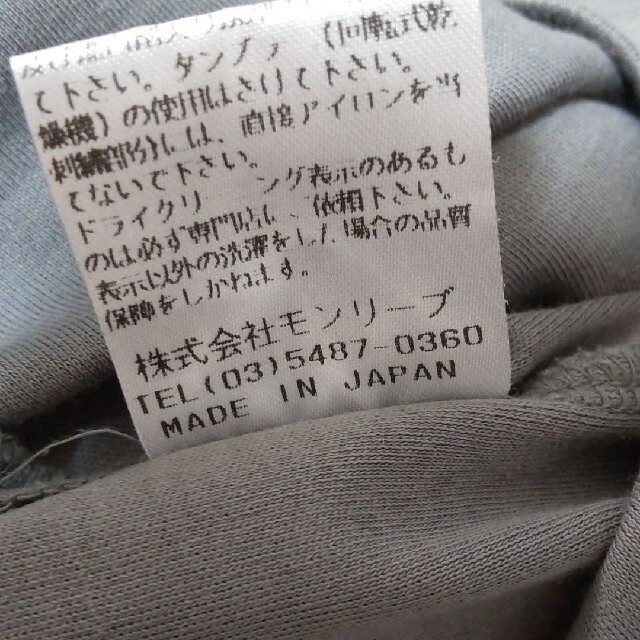 て下さい。タンブラー(回転式乾
燥機)の使用はさけて下さい。
刺繍部分には、直接アイロンを当
てないで下さい。
ドライクリーニング表示のあるも
のは必ず専門店に、依頼下さい。
表示以外の洗濯をした場合の品質
保障をしかねます。
株式会社モンリーブ
TEL(03)5487-0360
MADE IN JAPAN